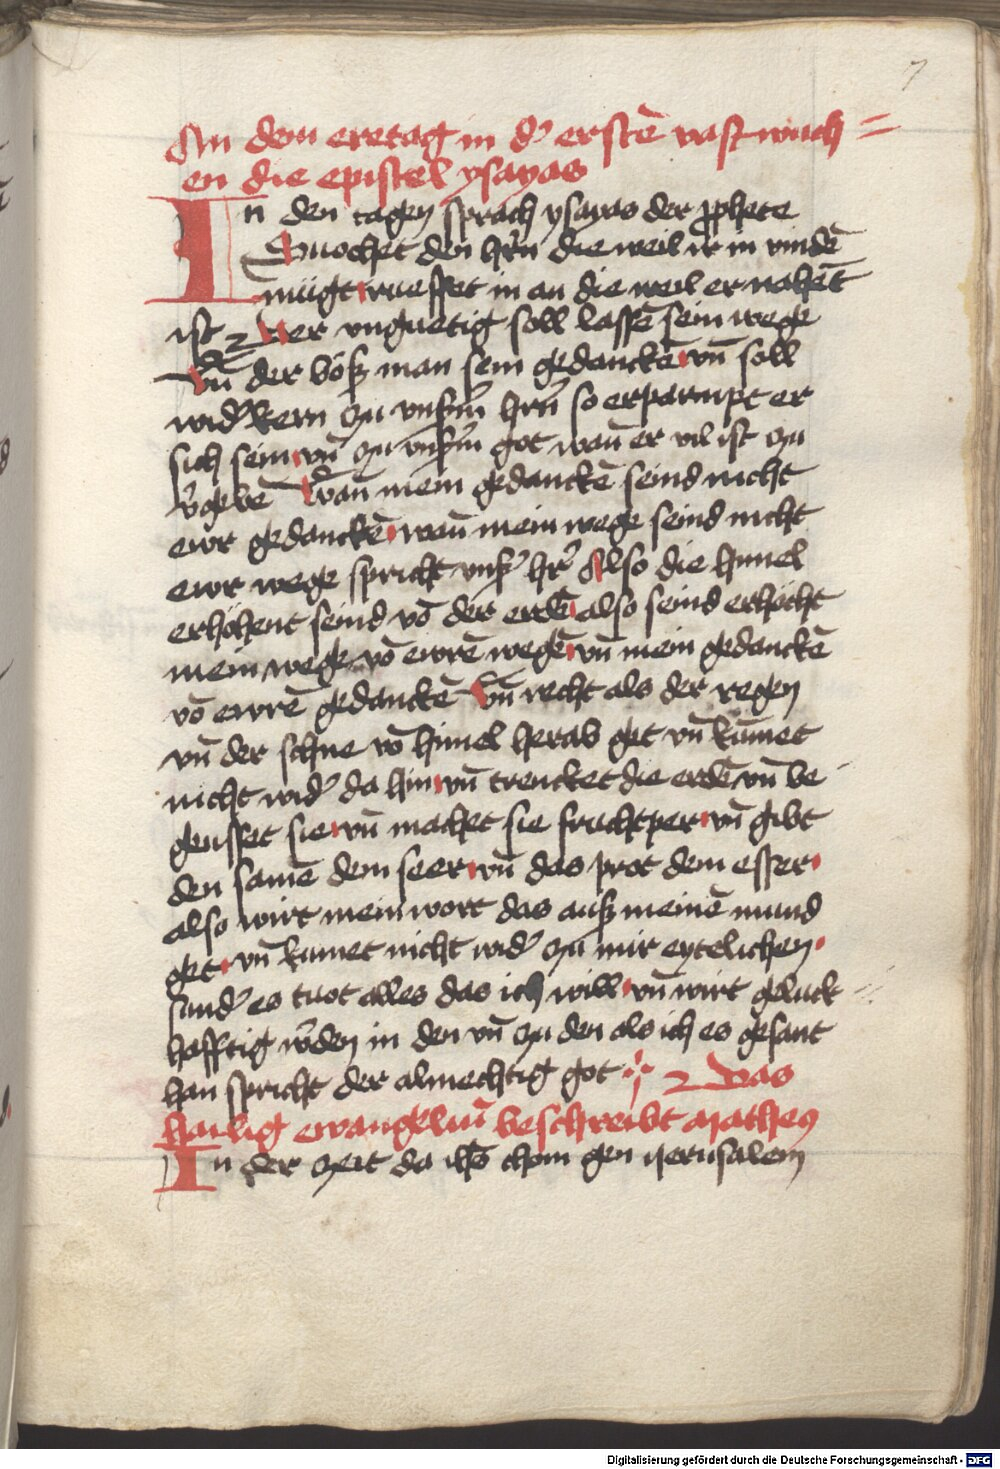 7
An dem eretag in d' erstē vast wuch =
en die epistel ysayas
In den tagen sprach ysayas der pphete
Suochet den hr̄n die weil ir in vindē
mügt rueffet in an die weil er nahent
ist Der vnguetig soll lassē sein wege
Vn̄ der böß man sein gedanckē vn̄ soll
wid'kern zu vnß'm hr̄n so erparmpt er
sich sein vn̄ zu vnß'm got wan̄ er vil ist zu
v'gebē Wan̄ mein gedanckē seind nicht
ewr gedanckē wan̄ mein wege seind nicht
ewr wege spricht vnß' hr̄ Also die himel
erhöhent seind vō der erdē also seind erhöcht
mein wege vō ewrē wegē vn̄ mein gedanckē
vō ewrē gedanckē Vn̄ recht als der regen
vn̄ der schne vō himel herab get vn̄ kum̄et
nicht wid' da hin vn̄ trencket die erdē vn̄ be
geusset sie vn̄ machet sie fruchtper vn̄ gibt
den samē dem seer vn̄ das prot dem esser
also wirt mein wort das auß meinē mund
get vn̄ kumet nicht wid' zu mir eytelichen
sund' es tuot alles das ich will vn̄ wirt geluck
hafftig w'den in den vn̄ zu den als ich es gesant
han spricht der almechtig got Das
hailig ewangeliū beschreibt matheus
In der zeit da ih̄s chom gen iherusalem
Digitalisierung gefördert durch die Deutsche Forschungsgemeinschaft - DFG